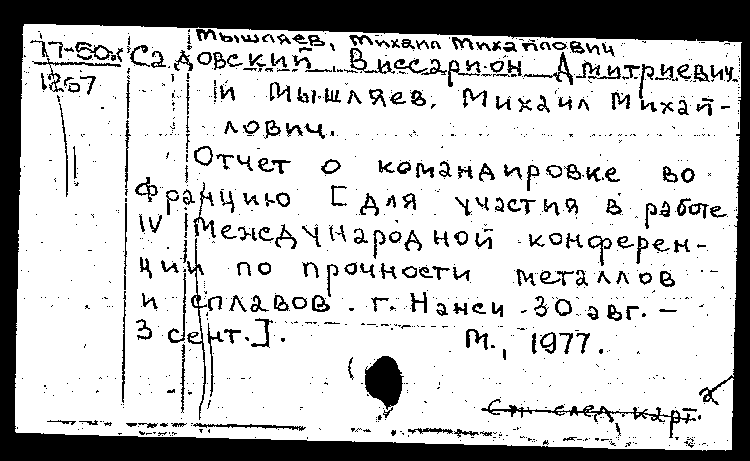 Мышляев, Михаил Михайлович
77-50к Садовский Виссарион Дмитриевич
1267 и Мышляев, Михаил Михай-
лович.
Отчет о командировке во
Францию [для участия в работе
IV Международной конферен-
ции по прочности металлов
и сплавов. г. Нанси 30 авг. -
3 сент.]. М., 1977.
См. след. карт.